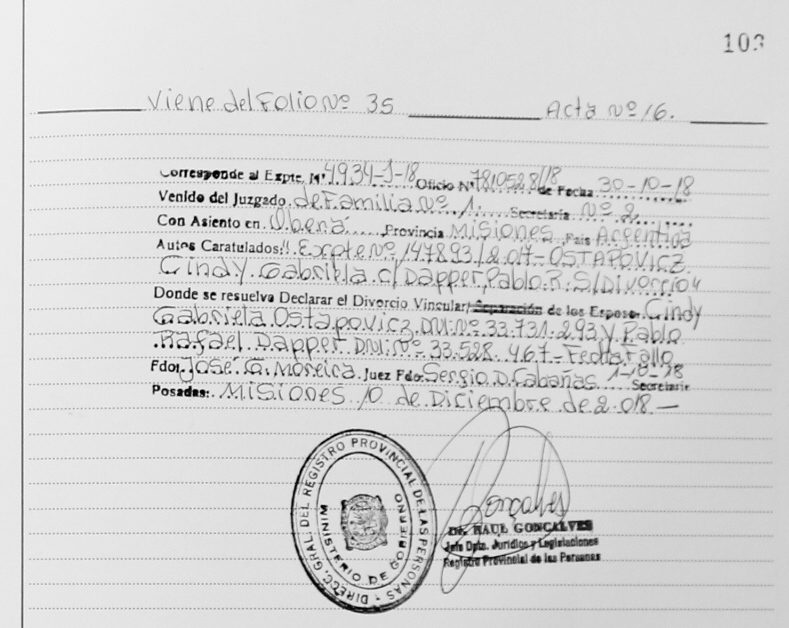 103
Viene del Folio Nº 35 Acta Nº 16.
Corresponde al Expte. Nº 4934-J-18 Oficio Nº 7810528/18 de Fecha 30-10-18
Venido del Juzgado de Familia Nº 1. Secretaria Nº 2
Con Asiento en Oberá Provincia Misiones País Argentina
Autos Caratulados: Expte Nº 147893/2017-OSTAPOVICZ
Cindy Gabriela c/Dapper, Pablo R. S/Divorcio
Donde se resuelva Declarar el Divorcio Vincular/ Separación de los Esposos Cindy
Gabriela Ostapovicz, DNI: Nº 33.731.293 y Pablo
Rafael Dapper DNI: Nº 33.528.467- Fecha Fallo
Fdo. José G. Moreira. Juez Fdo. Sergio D. Cabañas 1-10-18 Secretario
Posadas: Misiones 10 de Diciembre de 2.018 —
DIRECC. GRAL. DEL REGISTRO PROVINCIAL DE LAS PERSONAS
MINISTERIO DE GOBIERNO
Dr. RAUL GONCALVES
Jefe Dpto. Jurídico y Legislaciones
Registro Provincial de las Personas